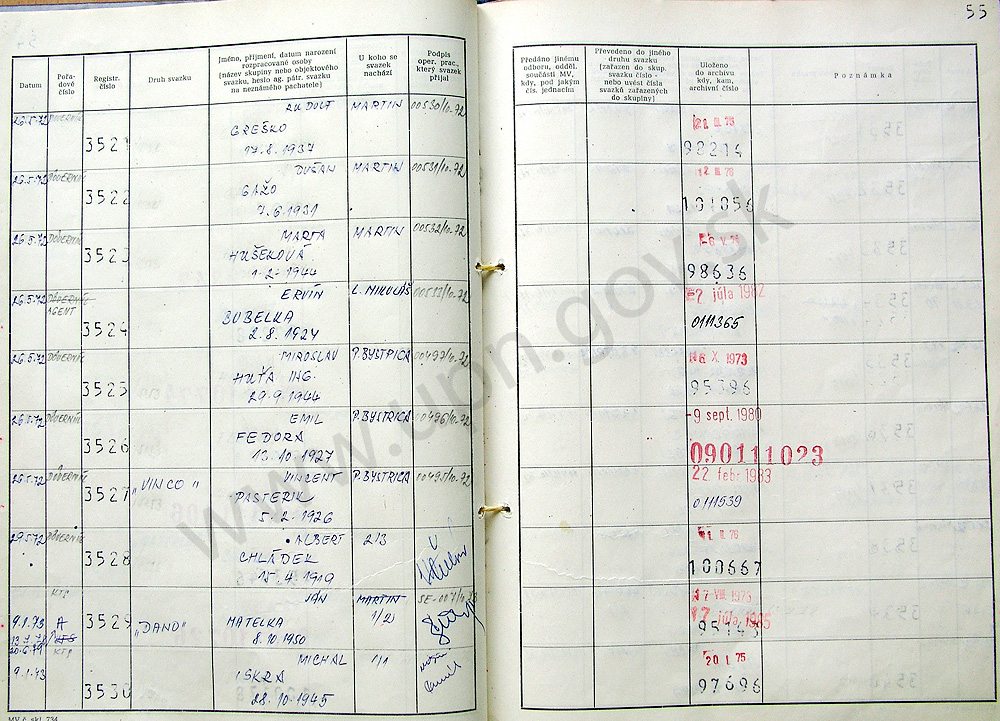 55
Datum
Pořadové číslo
Registr. číslo
Druh svazku
[jméno, příjmení, datum narození
rozpracované osoby
(název skupiny nebo objektového
svazku, heslo ag. pátr. svazku
na neznámého pachatele)]
U koho se
svazek
nachází
Podpis
oper. prac.,
který svazek
přijal
Předáno jinému
odboru, odděl.
součásti MV,
kdy, pod jakým
čís. jednacím
Převedeno do jiného
druhu svazku
[zařazen do skup.
svazku číslo -
nebo uvést čísla
svazků zařazených
do skupiny]
Uloženo
do archivu
kdy, kam,
archivní číslo
Poznámka
26.5.72 DŮVERNÍK 3521 RUDOLF MARTIN 00530/10-72
GREŠKO
17.8.1937
98214
26.5.72 DŮVERNÍK 3522 DUŠAN MARTIN 00531/10-72
GAŽO
7.6.1931
101056
26.5.72 DŮVERNÍK 3523 MARTA MARTIN 00532/10-72
HUŠEKOVÁ
1.2.1944
98636
26.5.72 DŮVERNÍK AGENT 3524 ERVÍN L. MIKULÁŠ 00533/10-72
BUBELKA
2.8.1924
2 júla 1982
0111365
26.5.72 DŮVERNÍK 3525 MIROSLAV P.BYSTRICA 00497/10-72
HUŤA ING.
29.9.1944
16 X. 1973
95396
26.5.72 DŮVERNÍK 3526 EMIL P.BYSTRICA 00496/10-72
FEDORA
13.10.1927
-9 sept. 1980
090111023
26.5.72 DŮVERNÍK 3527 "VINCO" VINCENT P.BYSTRICA 00495/10-72
PASTERIK
5.2.1926
22 febr 1983
0111539
29.5.72 DŮVERNÍK 3528 ALBERT 2/3
CHLÁDEK
15.4.1919
100667
KTS
9.1.73 A 3529 "DANO" JÁN MARTIN 1/2
MATELKA
8.10.1950
17 VIII. 1973
17 júla 1985
95143
20.6.79 KTS
9.1.73 3530 MICHAL 1/1
ISKRA
28.10.1945
20 I. 75
97696
www.upn.gov.sk